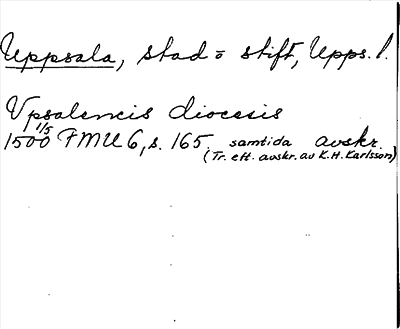 Uppsala, stad o stift, Upps. l.
Vpsalencis diocesis
1500 1/5 FMU 6, s. 165, samtida avskr.
(Tr. eft. avskr. av K.H. Karlsson)